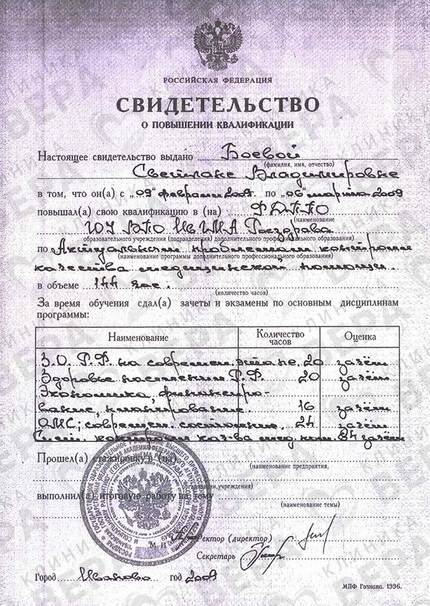 РОССИЙСКАЯ ФЕДЕРАЦИЯ
СВИДЕТЕЛЬСТВО
О ПОВЫШЕНИИ КВАЛИФИКАЦИИ
Настоящее свидетельство выдано Боевой
(фамилия, имя, отчество)
Светлане Владимировне
в том, что он(а) с «09» февраля 2009 г. по «06» марта 2009
повышал(а) свою квалификацию в (на) ФДППО
ГОУ ВПО ИвГМА Росздрава
образовательного учреждения (подразделения) дополнительного профессионального образования)
по Актуальным проблемам контроля
(наименование программы дополнительного профессионального образования)
качества медицинской помощи
в объеме 144 час.
(количество часов)
За время обучения сдал(а) зачеты и экзамены по основным дисциплинам
программы:
Наименование Количество часов Оценка
З.О. Р.Ф. на современ. этапе 20 зачёт
Здоровье населения Р.Ф. 20 зачёт
Экономика, финансиро-
вание, планирование 16 зачёт
ОМС; современ. состояние 24 зачёт
контроля кач-ва мед. пом. 84 зачёт
Прошел(а) стажировку в (на)
(наименование предприятия,
учреждения)
выполнил(а) итоговую работу на тему
(наименование темы)
Ректор (директор)
Секретарь
Город Иваново год 2009
МПФ Гознака. 1996.
КЛИНИКА ВЕРА